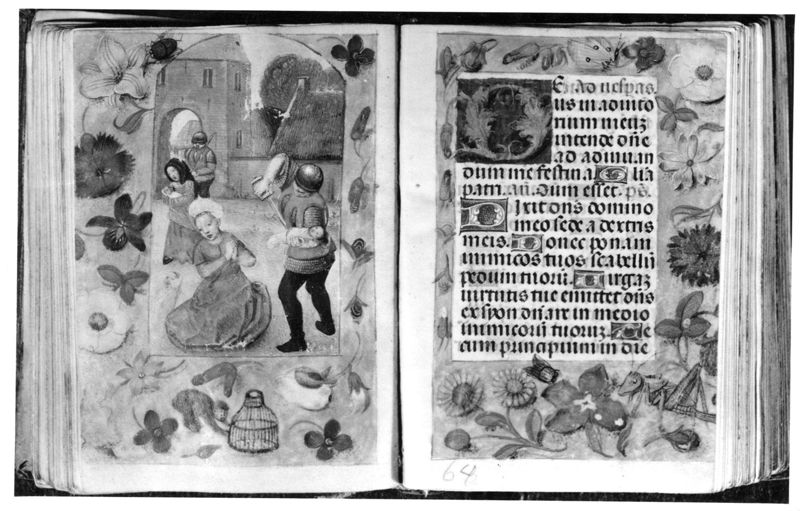 DE Ad vesp̄as.
us in adiuto
rium meuʒ
intende dn̄e
ad adiuuan
dum me festina. Gl̄ia
patri. an̄. Dum esset. ps̄.
Dixit dn̄s domino
meo sede a dextris
meis. Donec ponam
inimicos tuos scabellū
pedum tuorū. Virgaʒ
virtutis tue emittet dn̄s
ex syon dn̄are in medio
inimicorū tuoruʒ. Te
cum principium in die
64